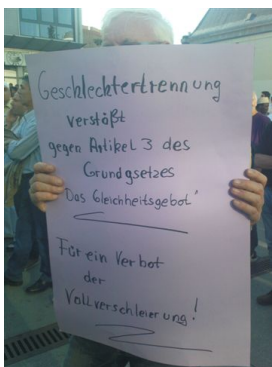 Geschlechtertrennung
verstößt
gegen Artikel 3 des
Grundgsetzes
"Das Gleichheitsgebot"
Für ein Verbot
der
Vollverschleierung!